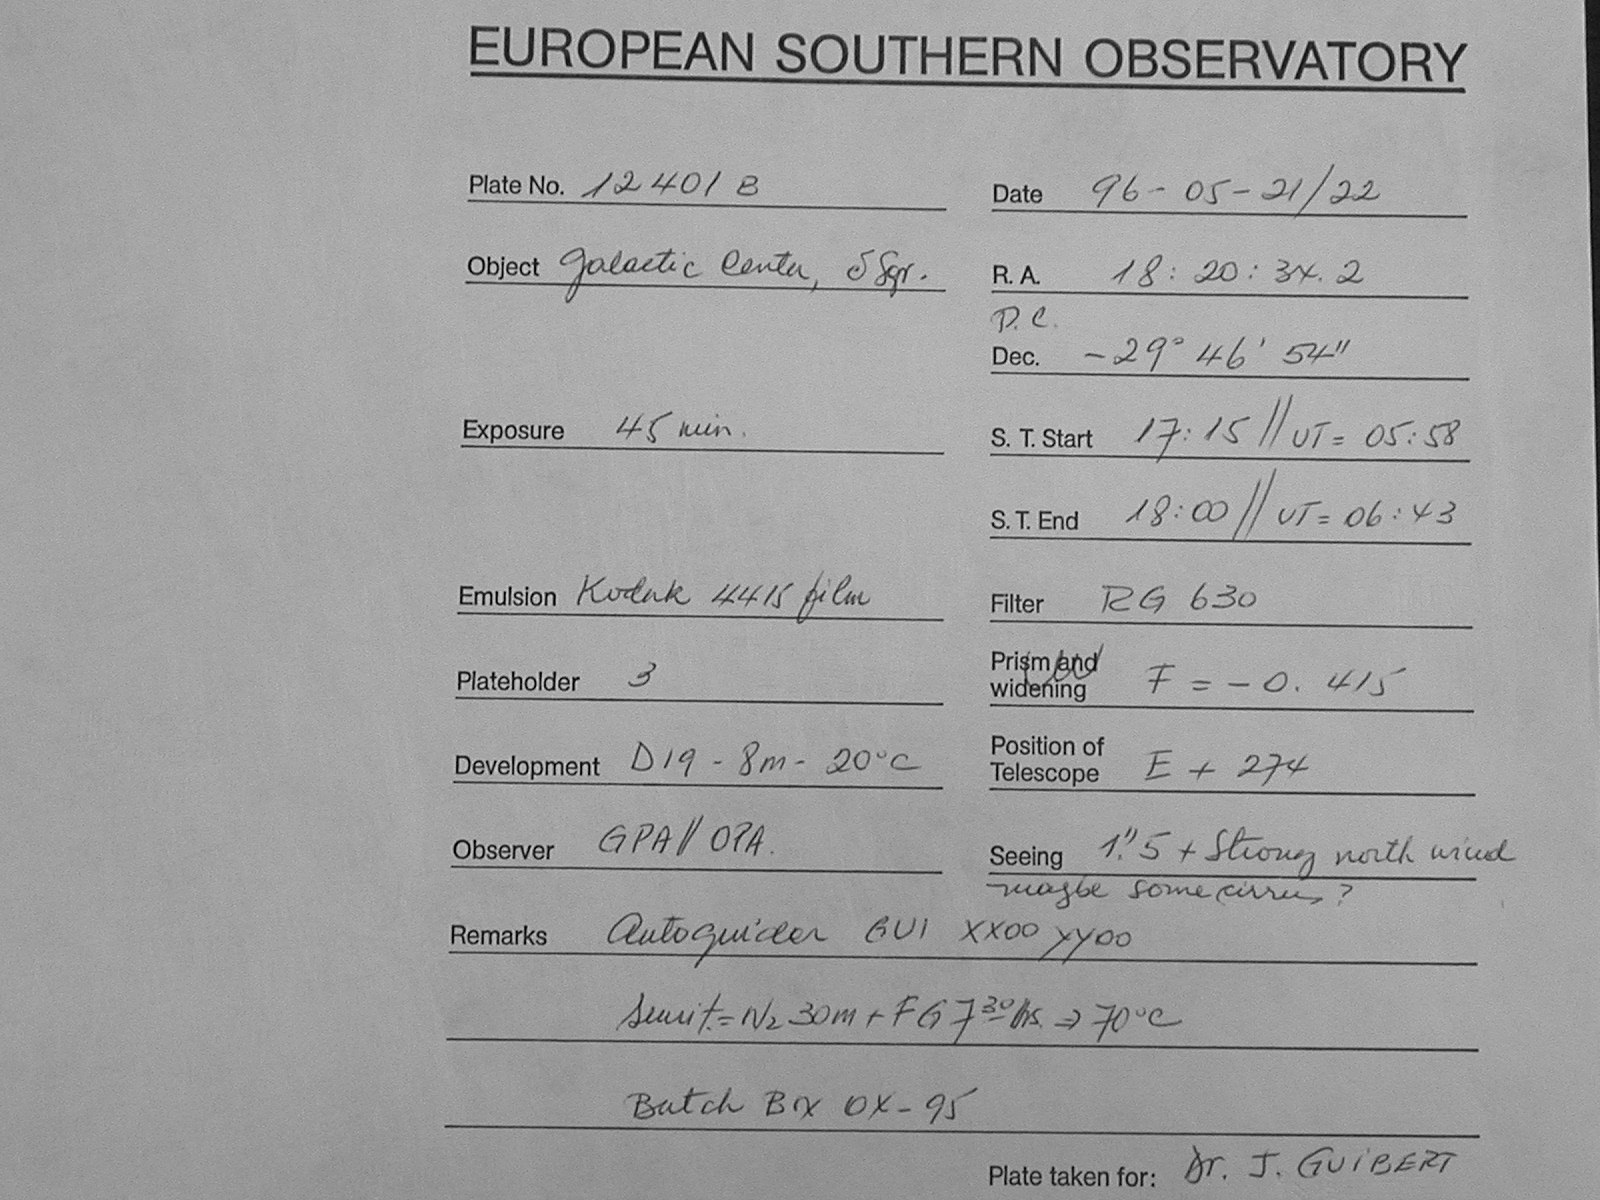 EUROPEAN SOUTHERN OBSERVATORY
Plate No. 12401 B
Date 96-05-21/22
Object Galactic Center, δ Sgr.
R. A. 18: 20: 34. 2
P. C.
Dec. -29° 46' 54"
Exposure 45 min.
S. T. Start 17:15 // UT= 05:58
S. T. End 18:00 // UT= 06:43
Emulsion Kodak 4415 film
Filter RG 630
Plateholder 3
Prism and widening F = -0. 415
Development D19 - 8m - 20°C
Position of Telescope E + 274
Observer GPA // OPA.
Seeing 1".5 + Strong north wind
maybe some cirrus?
Remarks Autoguider GUI XX00 YY00
Sensit.= N2 30m + FG 7 30 hs. ⇒ 70°C
Batch Box 0X-95
Plate taken for: Dr. J. GUIBERT